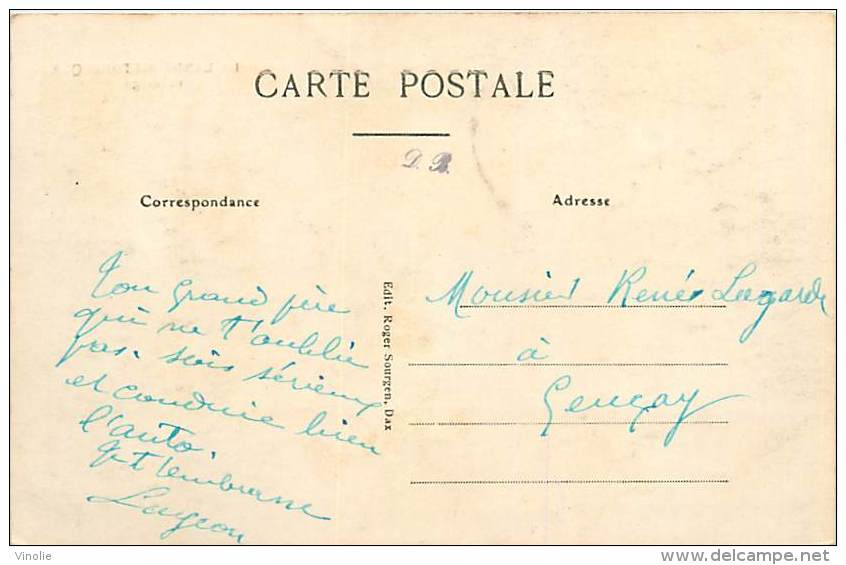 CARTE POSTALE
D. B.
Correspondance
Adresse
Ton grand père
qui ne t'oublie
pas. sois sérieux
et conduire bien
l'auto.
qui t'embrasse
Edit. Roger Sourgen, Dax
Monsieur Renée Lagarde
à
Gençay
Vinolie
www.delcampe.net